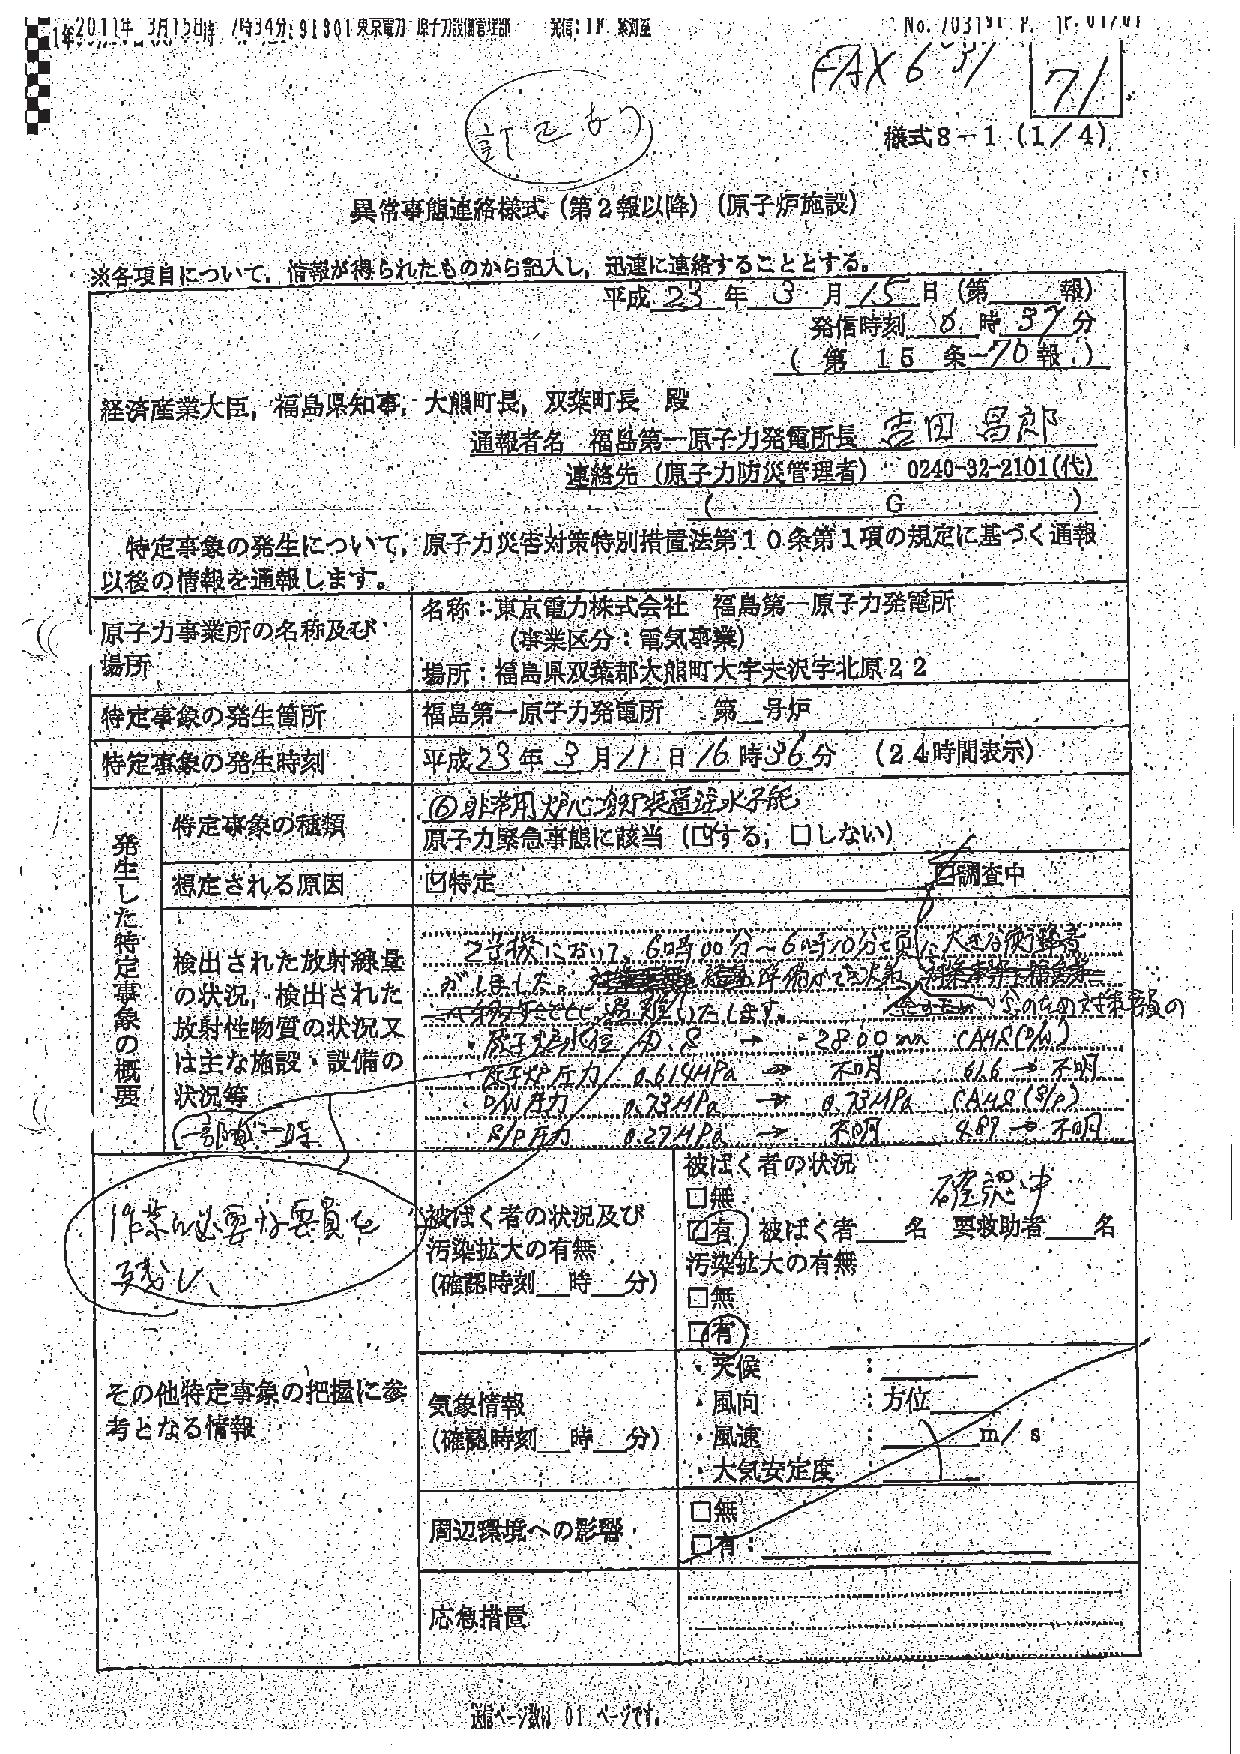 2011年 3月15日 7時34分
東京電力 原子力設備管理部
FAX 6
71
訂正あり
様式8－1（1／4）
異常事態連絡様式（第2報以降）（原子炉施設）
※各項目について，情報が得られたものから記入し，迅速に連絡することとする。
平成23年3月15日（第　報）
発信時刻 6時37分
（第15条－70報）
経済産業大臣，福島県知事，大熊町長，双葉町長　殿
通報者名　福島第一原子力発電所長　吉田 昌郎
連絡先（原子力防災管理者）　0240-32-2101(代)
（　G　）
特定事象の発生について，原子力災害対策特別措置法第10条第1項の規定に基づく通報
以後の情報を通報します。
原子力事業所の名称及び
場所
名称：東京電力株式会社　福島第一原子力発電所
（事業区分：電気事業）
場所：福島県双葉郡大熊町大字夫沢字北原22
特定事象の発生箇所
福島第一原子力発電所　第＿号炉
特定事象の発生時刻
平成23年3月11日16時36分　（24時間表示）
発生した特定事象の概要
特定事象の種類
⑥非常用炉心冷却装置注水不能
原子力緊急事態に該当（☑する，□しない）
想定される原因
☑特定
☑調査中
検出された放射線量
の状況，検出された
放射性物質の状況又
は主な施設・設備の
状況等
2号機において，6時00分～6時10分頃に大きな衝撃音
がしました。準備ができ次第
対策要員の
一部が一時
避難いたします。
・原子炉水位　　→　-2800mm　CAMS(D/W)
・原子炉圧力　0.614MPa　→　不明　61.6→不明
・D/W圧力　0.73MPa　→　0.73MPa　CAMS(S/P)
・S/P圧力　0.27MPa　→　不明　4.89→不明
作業に必要な要員を
残し、
その他特定事象の把握に参
考となる情報
被ばく者の状況及び
汚染拡大の有無
（確認時刻＿時＿分）
被ばく者の状況　確認中
□無
□有　被ばく者＿名　要救助者＿名
汚染拡大の有無
□無
□有
気象情報
（確認時刻＿時＿分）
・天候　：
・風向　：方位
・風速　：　m／s
・大気安定度　：
周辺環境への影響
□無
□有：
応急措置
送信ページ数は 01 ページです。